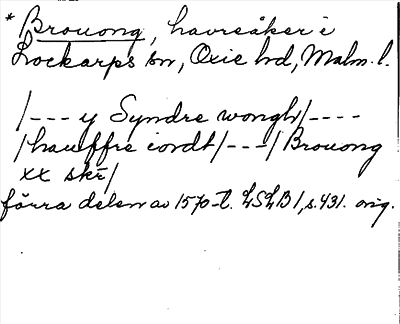 * Brouong, havreåker i
Lockarps sn, Oxie hd, Malm. l.
/--- y Syndre wongh/----
/hauffre iordt/---/ Brouong
xx skr/
förra delen av 1570-t. LSLB 1, s. 431. orig.